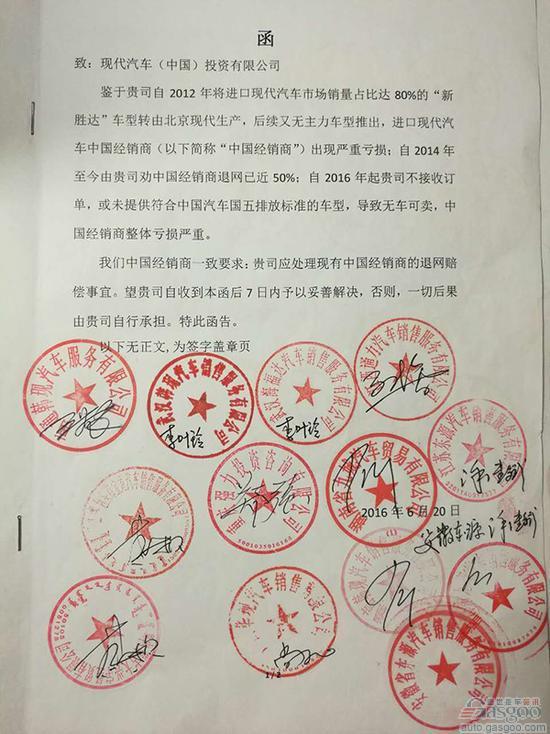 函
致：现代汽车（中国）投资有限公司
鉴于贵司自 2012 年将进口现代汽车市场销量占比达 80%的“新
胜达”车型转由北京现代生产，后续又无主力车型推出，进口现代汽
车中国经销商（以下简称“中国经销商”）出现严重亏损；自 2014 年
至今由贵司劝中国经销商退网已近 50%；自 2016 年起贵司不接收订
单，或未提供符合中国汽车国五排放标准的车型，导致无车可卖，中
国经销商整体亏损严重。
我们中国经销商一致要求：贵司应处理现有中国经销商的退网赔
偿事宜。望贵司自收到本函后 7 日内予以妥善解决，否则，一切后果
由贵司自行承担。特此函告。
以下无正文,为签字盖章页
韩现汽车服务有限公司
汉韩现汽车销售服务有限公司
李叶玲
武汉海福达汽车销售服务有限公司
李叶玲
通力汽车销售服务有限公司
强力投资咨询有限
汽车贸易有限公司
江苏东源汽车销售服务有限
2016 年 6 月 20 日
安徽东源
汽车销售
安徽省东源汽车销售服务有限公司
1/2
Gasgoo
auto.gasgoo.com